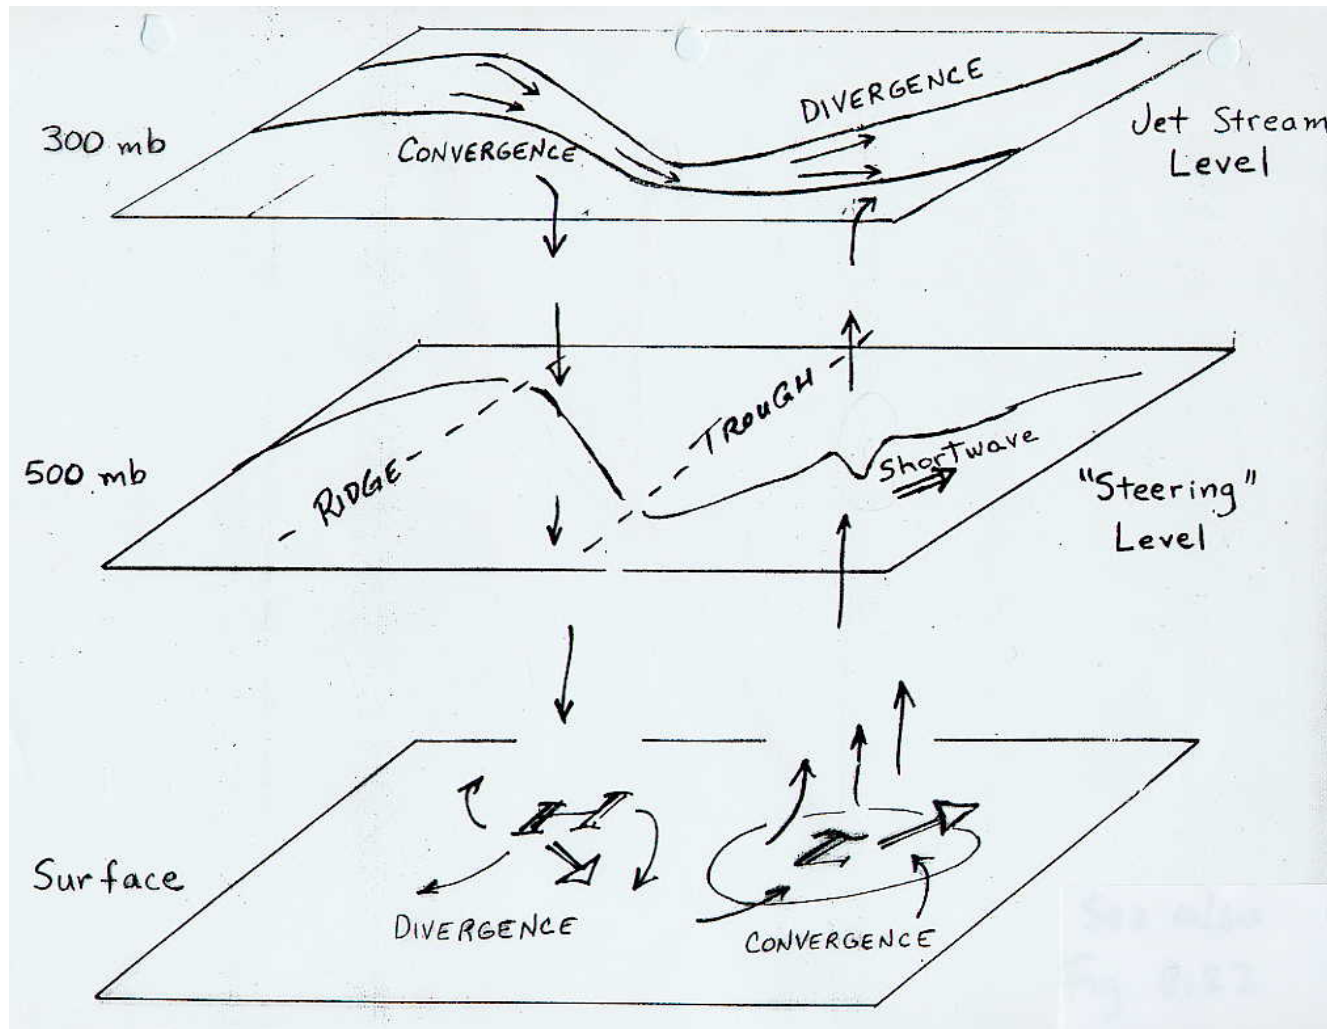 300 mb
CONVERGENCE
DIVERGENCE
Jet Stream
Level
500 mb
RIDGE
TROUGH
Shortwave
"Steering"
Level
Surface
H
L
DIVERGENCE
CONVERGENCE
See also
Fig